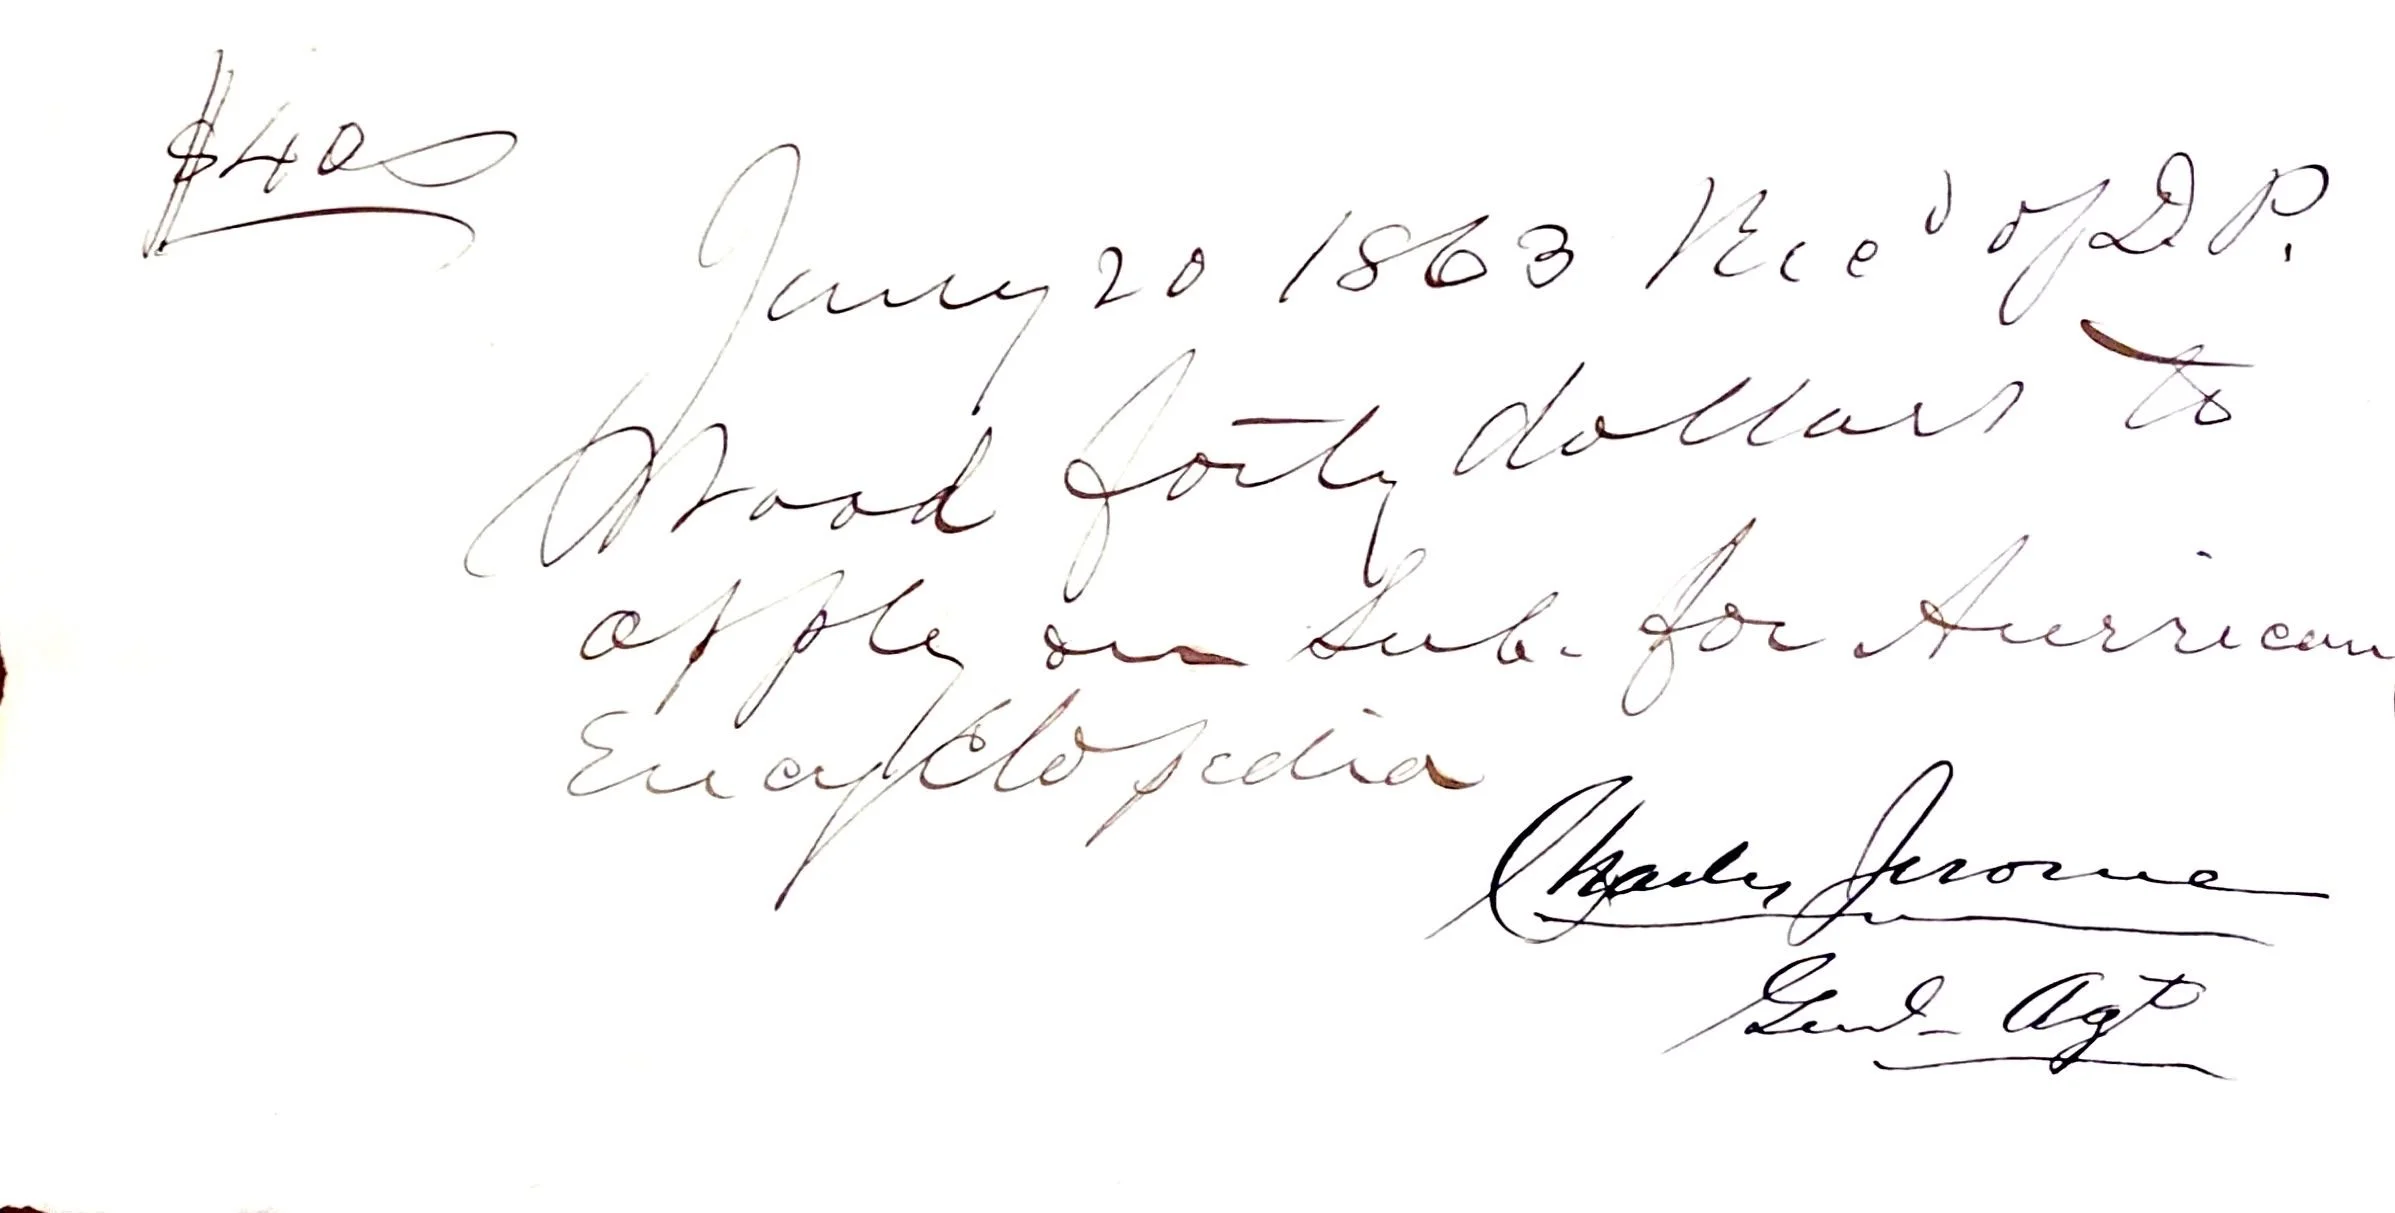 $40
Jany 20 1863 Rec'd of D. P.
Wood forty dollars to
apply on Sub. for American
Encyclopedia
Charles Jerome
Genl Agt